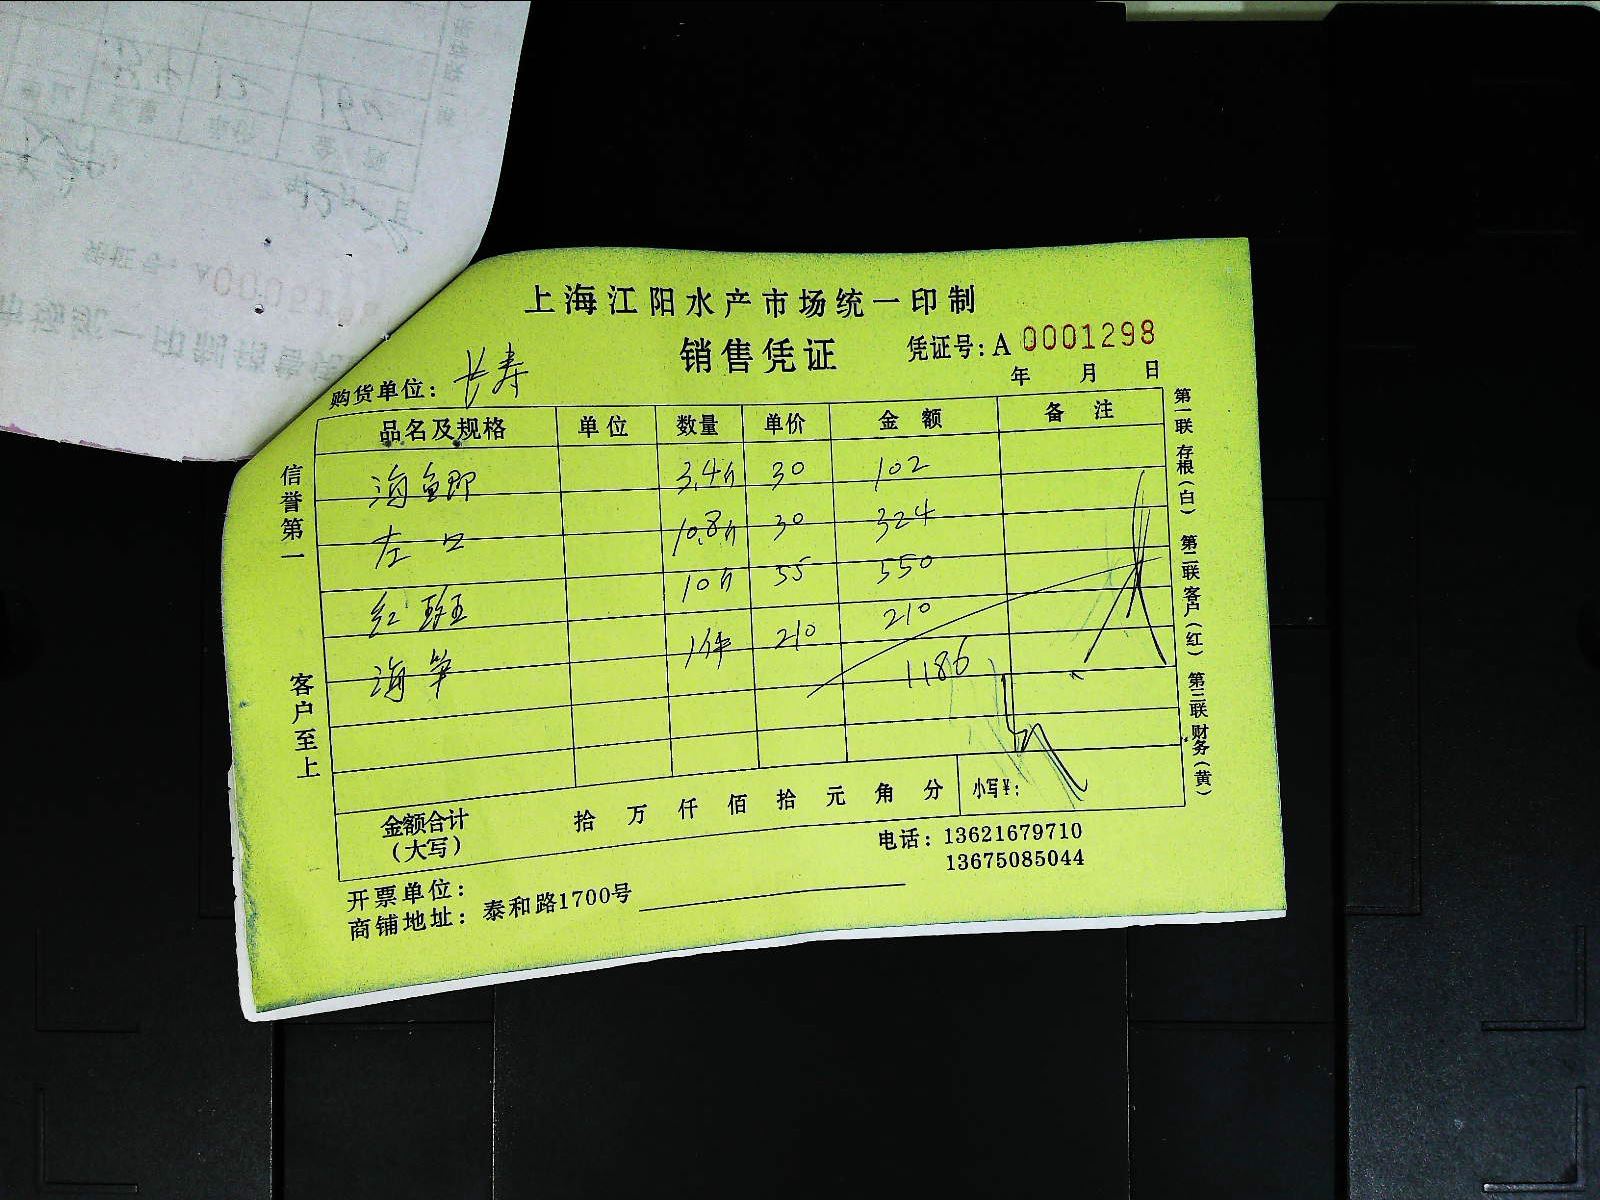 上海江阳水产市场统一印制
销售凭证 凭证号:A 0001298
购货单位: 长寿 年 月 日
品名及规格 单位 数量 单价 金额 备注
海鱼即 3.4斤 30 102
左口 10.8斤 30 324
红斑 10斤 55 550
海笋 1件 210 210
1186
金额合计 拾 万 仟 佰 拾 元 角 分 小写¥:
(大写)
电话: 13621679710
13675085044
开票单位:
商铺地址: 泰和路1700号
信誉第一 客户至上
第一联 存根(白) 第二联 客户(红) 第三联 财务(黄)